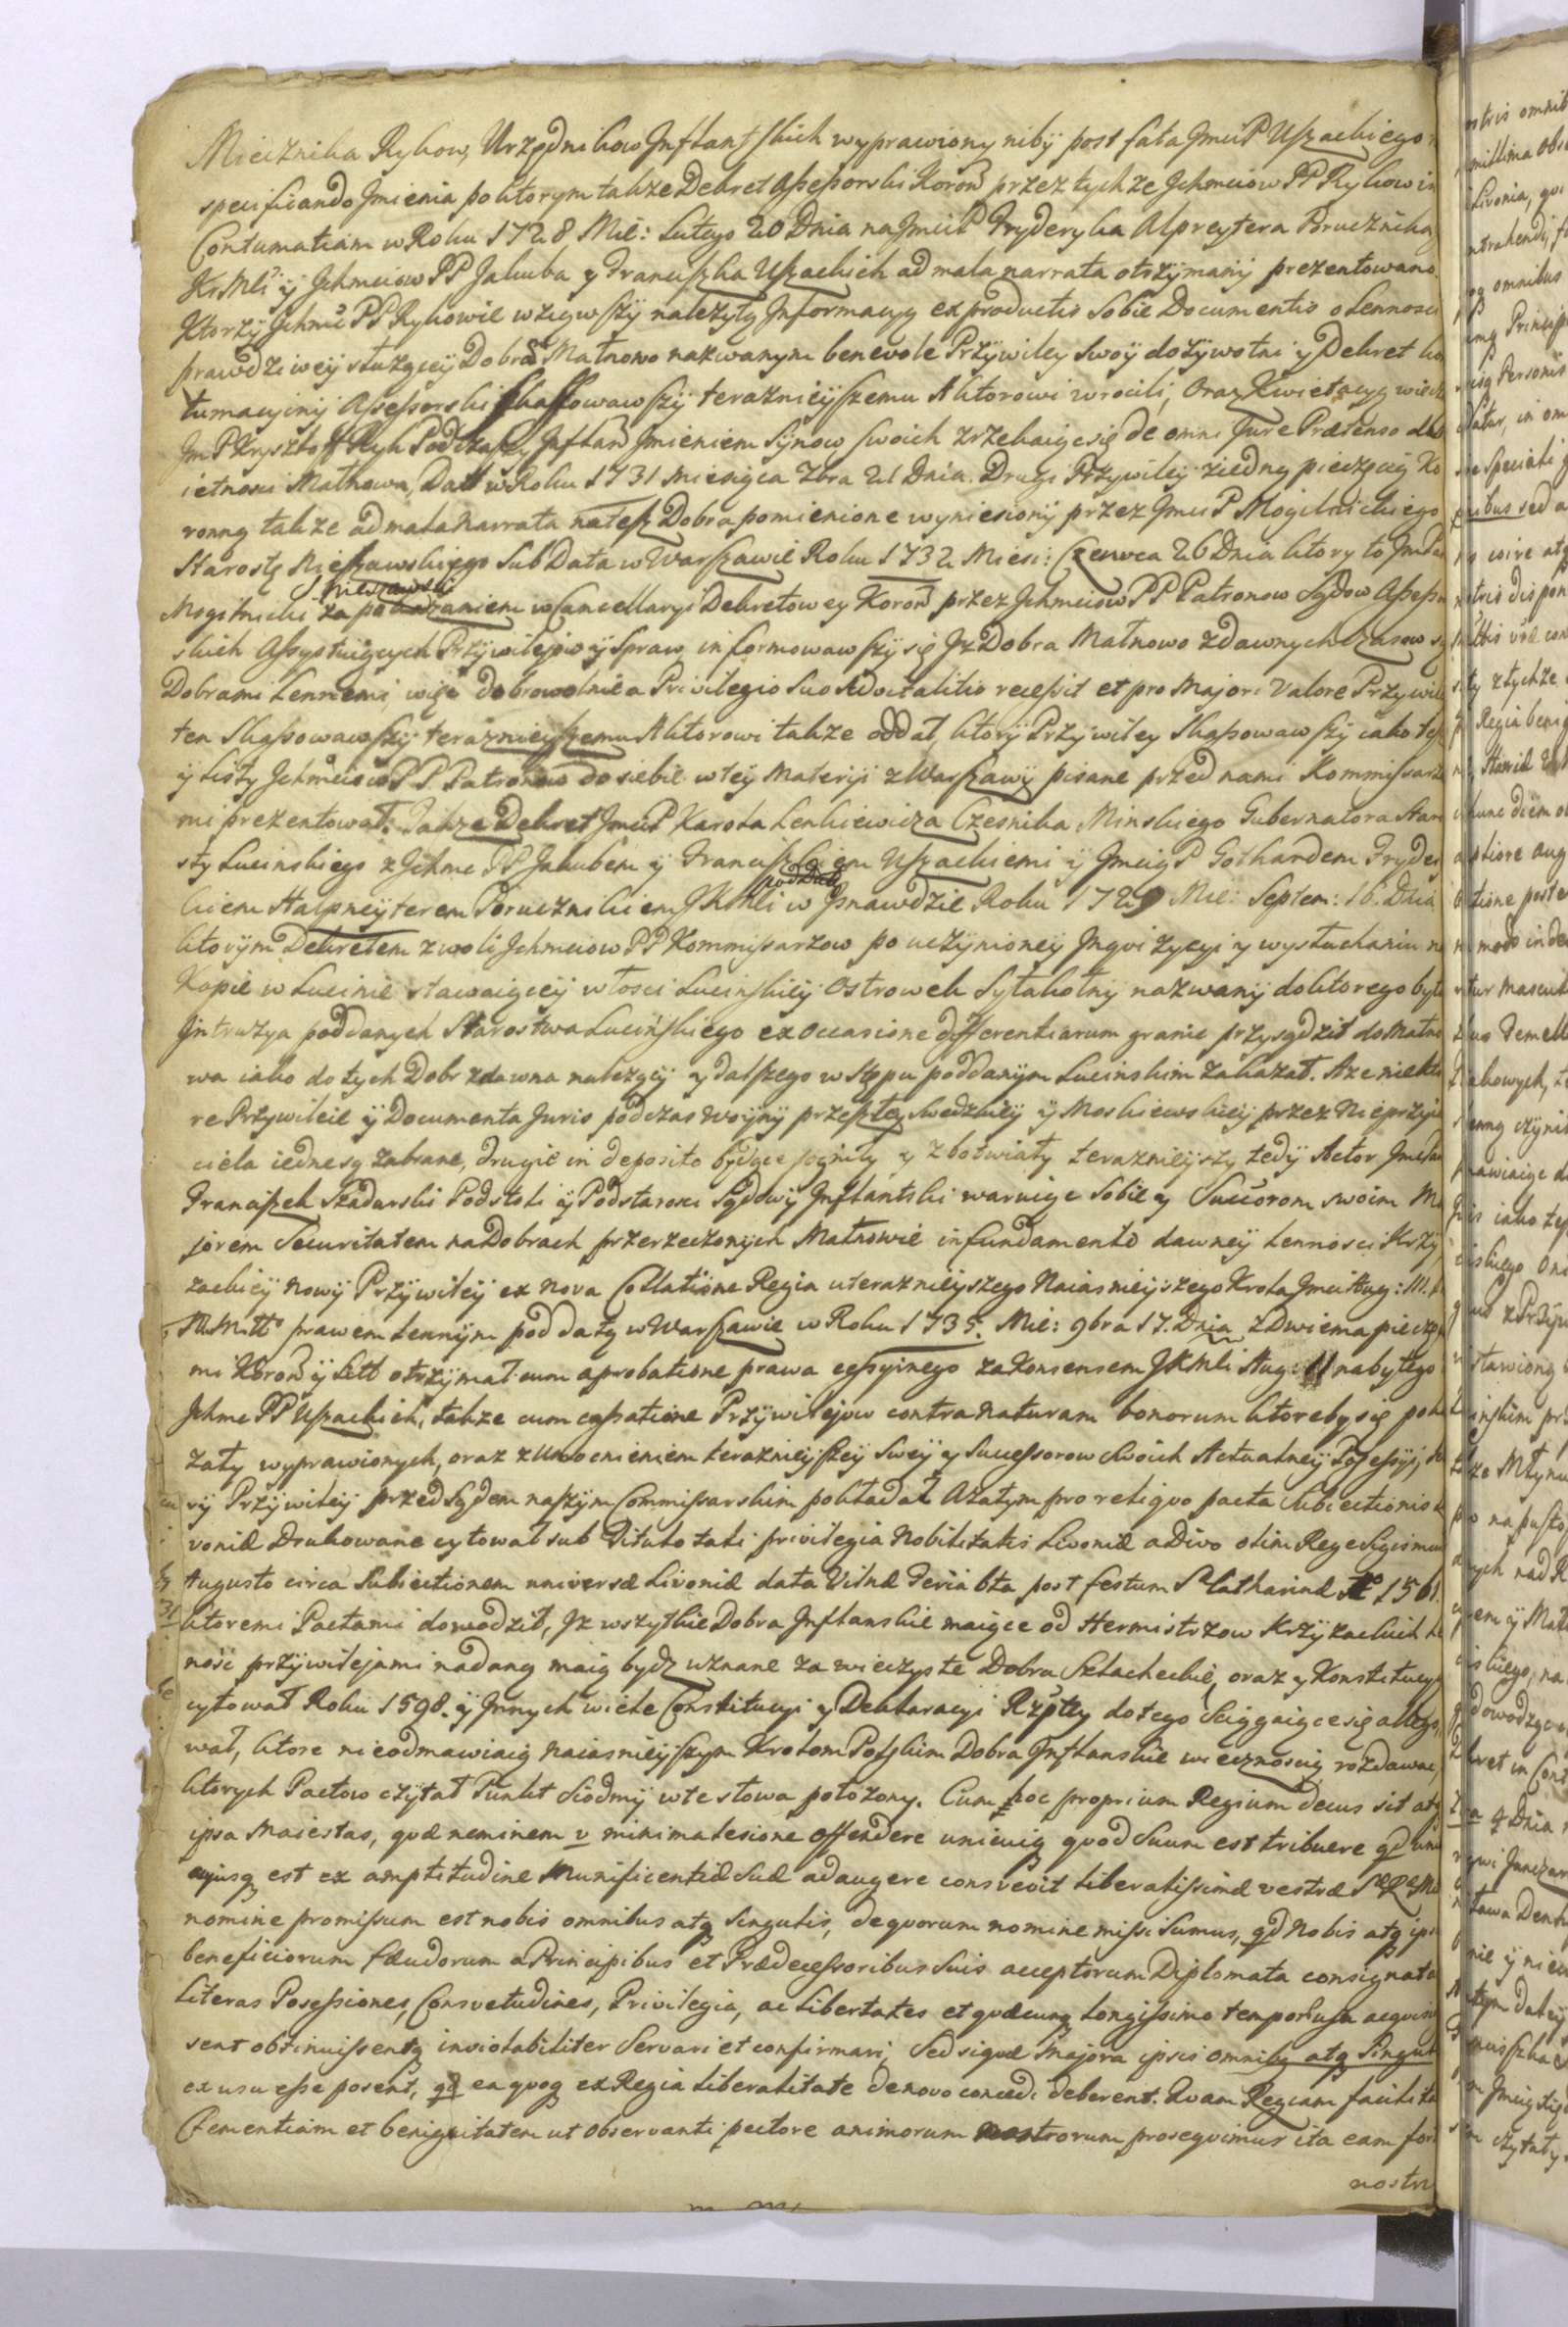 Miecznika Rykow, Urzędnikow Inflantskich wyprawiony niby post fata JmciP Uszackiego
specificando Imienia po ktorym takze Dekret Assessorski Koron przez tychze Ichmciow PP Rykow in
Contumatiam w Roku 1728 Mie: Lutego 20 Dnia na JmciP Fryderyka Alpreytera Porucznika
JKrMci y Ichmciow PP Jakuba y Franciszka Uszackich ad mala narrata otrzymany prezentowano
Ktorzy Ichmc PP Rykowie wziąwszy nalezytą Informacyą ex productis Sobie Documentis o Lennosci
prawdziwey słuzącey Dobrom Małnowo nazwanym benevole Przywiley Swoy dozywotni y Dekret kon
tumacyiny Assessorski skassowawszy teraznieyszemu Aktorowi wrocili, Oraz Kwietacyą wiecz
JmP Krysztoff Ryk Podczaszy Inflan Imieniem Synow Swoich zrzekaiąc się de omni Jure Prætenso do
ietnosci Małnowa, Datt w Roku 1731 Miesiąca 7bra 21 Dnia. Drugi Przywiley z iedną pieczęcią Ko
ronną takze ad mala narrata na tesz Dobra pomienione wyniesiony przez JmciP Mogilnickiego
Starostę Nieszawskiego Sub Data w Warszawie Roku 1732 Miesi: Czerwca 26 Dnia ktory to JmPan
Mogilnicki za pokazaniem w Cancellaryi Dekretowey Koron przez Ichmciow PP Patronow Sądow Assess
skich Assystuiących Przywilejow y Spraw informowawszy się Jz Dobra Małnowo zdawnych Czasow są
Dobrami Lennemi, więc dobrowolnie a Privilegio Suo Advitalitio recessit et pro Majori Valore Przywil
ten Skassowawszy teraznieyszemu Aktorowi takze oddał, ktory Przywiley Skassowawszy iako tesz
y Listy Ichmciow PP Patronow do siebie w tey Materyi z Warszawy pisane przed nami Kommissarza
mi prezentował. Takze Dekret JmciP Karola Lenkiewicza Czesnika Minskiego Gubernatora Star
sty Lucinskiego z Ichmc PP Jakubem y Franciszkiem Uszackiemi y JmcigP Gothardem Fryde
kiem Halpreyterem Porucznikiem JKrMci w Isnawdzie pod Datą Roku 1729 Mie: Septem: 16. Dnia
ktorym Dekretem z woli Ichmciow PP Kommissarzow po uczynioney Inqvizycyi y wysłuchaniu na
Kopie w Lucinie stawaiącey włosci Lucinskiey Ostrowek Sytakolny nazwany do ktorego była
Intruzya poddanych Starostwa Lucinskiego ex Occasione differentiarum granic przysądził do Małno
wa iako do tych Dobr zdawna nalezący y dalszego wstępu poddanym Lucinskim zakazał. Aze niekto
re Przywileie y Documenta Juris podczas Woyny przeszłey Swedzkiey y Moskiewskiey przez Nieprzyia
ciela iedne są zabrane, drugie in deposito będące pogniły y zbotwiały teraznieyszy tedy Actor JmcPan
Franciszek Szadurski Podstoli y Podstarosci Sądowy Inflantski waruiąc Sobie y Succorom swoim Ma
jorem Securitatem na Dobrach przerzeczonych Małnowie in fundamento dawney Lennosci Krzy
zackiey nowy Przywiley ex nova Collatione Regia u teraznieyszego Naiasnieyszego Krola Jmci Aug: III.
prawem Lennym pod datą w Warszawie w Roku 1735. Mie: 9bra 17. Dnia z Dwiema pieczę
mi Koron y Litt otrzymał cum aprobatione prawa cessyinego za Konsensem JKMci Aug: II nabytego
Ichmc PP Uszackich, takze cum cassatione Przywilejow contra naturam bonorum ktoreby się poka
zały wyprawionych, oraz z Umocnieniem teraznieyszey Swey y Successorow Swoich Actualney Possessyi, kto
ry Przywiley przed Sądem naszym Commissarskim pokładał Azatym pro reliquo pacta Subiectionis Li
voniæ Drukowane cytował sub Titulo tali privilegia Nobilitatis Livoniæ a Divo olim Rege Sigismun
Augusto circa Subiectionem universæ Livoniæ data Vilnæ Feria 6ta post festum S. Catharinæ Ao 1561.
ktoremi Pactami dowodził, Jz wszytkie Dobra Inflanskie maiące od Hermistrzow Krzyzackich Le
nosć przywilejami nadaną maią bydz uznane za wieczyste Dobra Szlacheckie, oraz y Konstitucye
cytował Roku 1598. y Innych wiele Constitucyi y Deklaracyi Rzptey do tego Sciągaiące się allego
wał, ktore nieodmawiaią Naiasnieyszym Krolom Polskim Dobra Inflanskie wiecznoscią rozdawac,
ktorych Pactow czytał Punkt Siodmy w te słowa połozony. Cum hoc proprium Regium decus sit atq
ipsa Maiestas, quæ neminem v minima lesione offendere unicuiq quod Suum est tribuere qd uni
cujusq est ex amplitudine Munificentiæ Suæ adaugere consvevit liberalissimæ vestræ
nomine promissum est nobis omnibus atq Singulis, de quorum nomine missi Sumus, qd Nobis atq ipsis
beneficiorum fæudorum a Principibus et Prædecessoribus Suis acceptorum Diplomata consignata
Literas Possessiones, Consvetudines, Privilegia, ac Libertates et quæcunq longissimo temporis usu acquisi
sent obtinuissentq inviolabiliter Servari et confirmari, Sed si quæ Majora ipsis omnibq atq Singul
ex usu esse possent, qd ea quoq ex Regia Liberalitate denovo concedi deberent. Quam Regiam facilita
Clementiam et benignitatem ut observanti pectore animorum nostrorum proseqvimur ita eam for
nostri